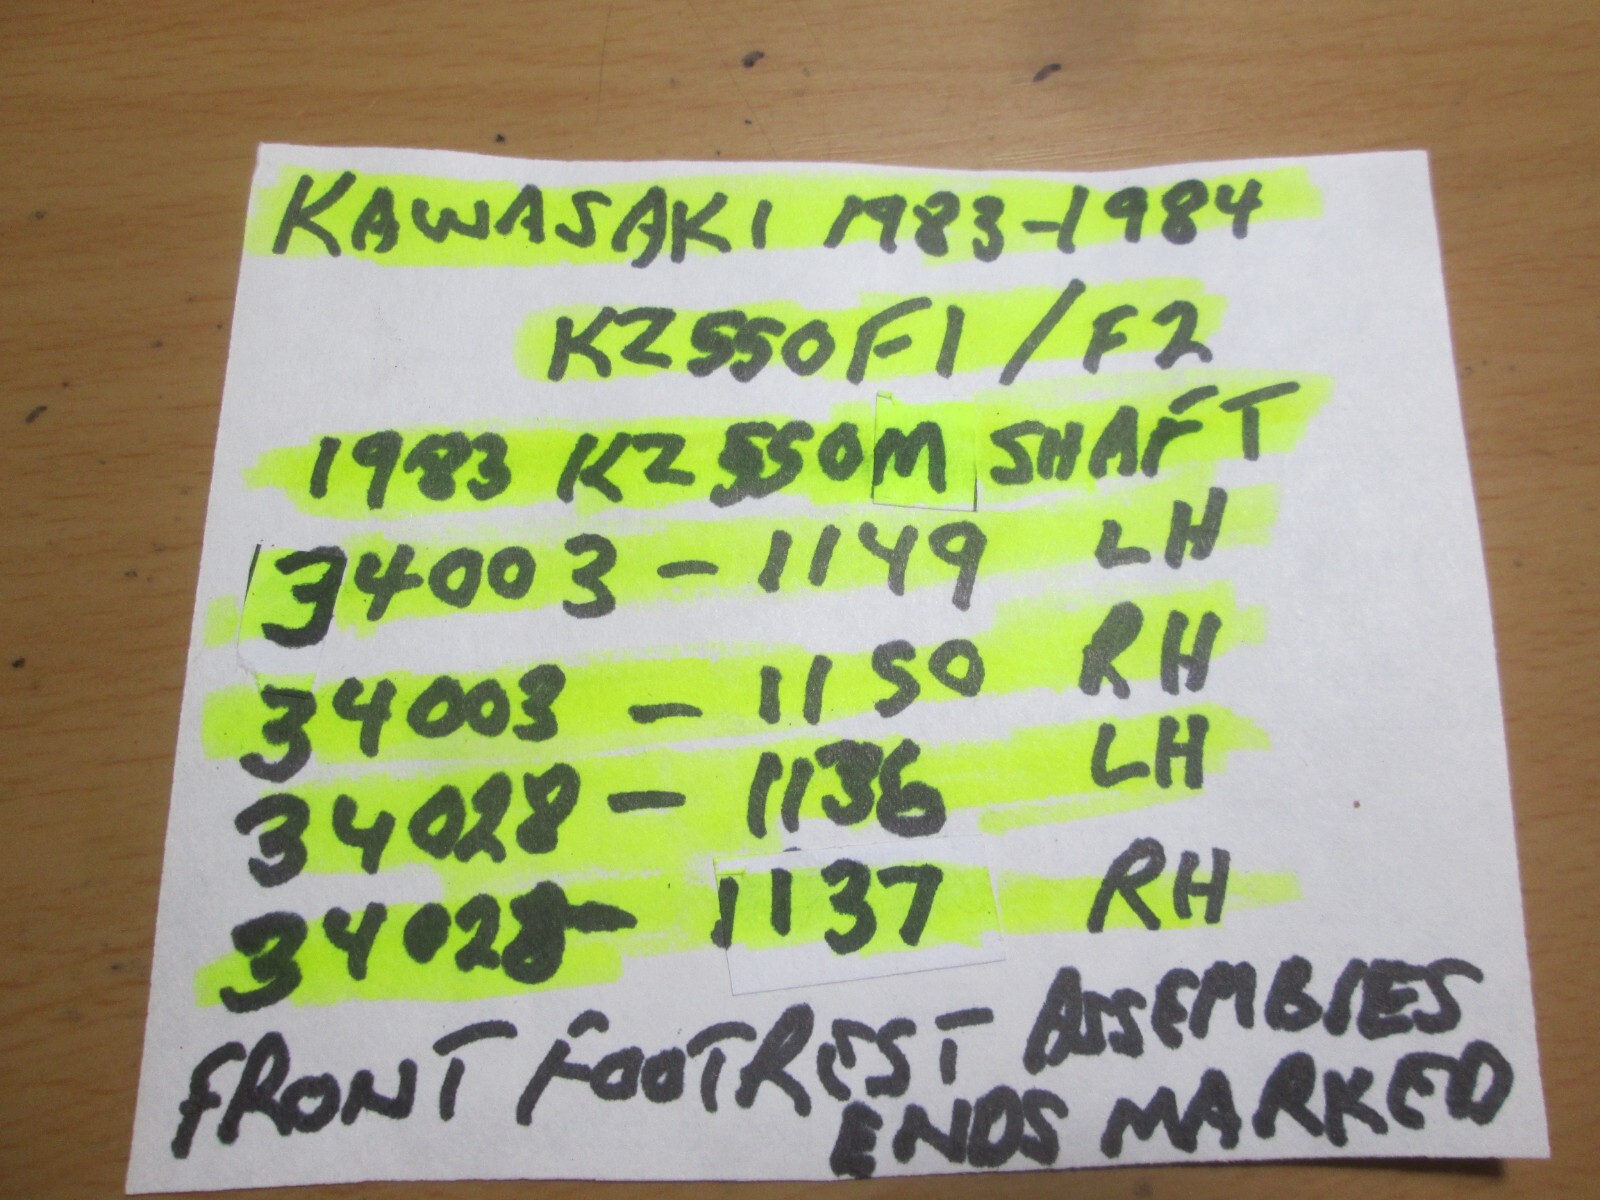 KAWASAKI 1983-1984
KZ550F1/F2
1983 KZ550M SHAFT
34003-1149 LH
34003-1150 RH
34028-1136 LH
34028-1137 RH
FRONT FOOTREST ASSEMBIES
ENDS MARKED